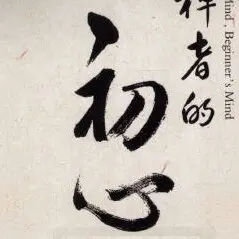 Mind, Beginner's Mind
者的
初心